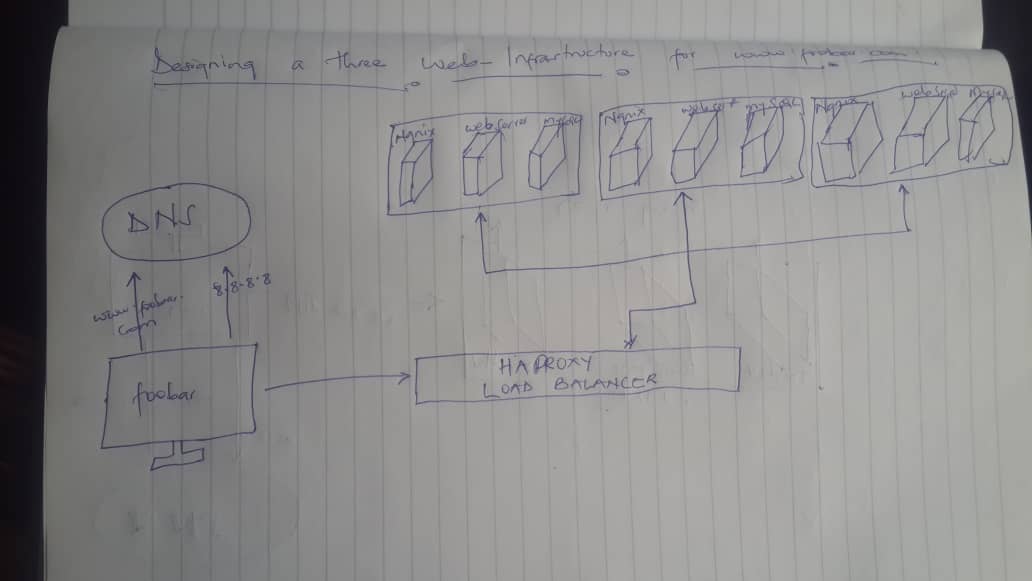 Designing a three web-Infrartucture for www.foobar.com.
Nqnix webserver mysql
Nqnix webserv mysql
Nqnix webserv Mysql
DNS
www.foobar.
com
8.8.8.8
foobar
HAPROXY
LOAD BALANCER